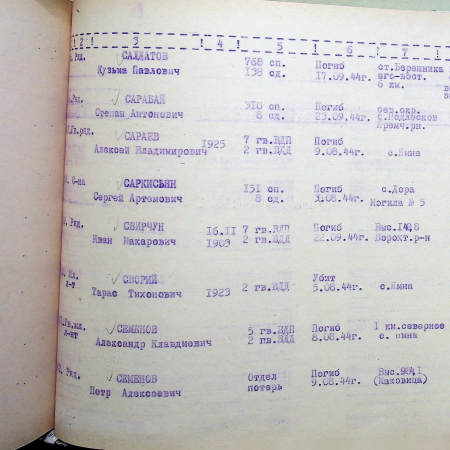 2 ! 3 ! 4 ! 5 ! 6 ! 7
Ряд. САЛДАТОВ 768 сп. Погиб ст.Бережника
Кузьма Павлович 138 сд. 17.09.44г. юго-вост.
6 км.
Ряд. САРАБАЙ 310 сп. Погиб сев.окр.
Степан Антонович 8 сд. 23.09.44г. с.Подлесков
Премч.рн.
Гв.ряд. САРАЕВ 7 гв.ВДП Погиб
Алексей Владимирович 1925 2 гв.ВДД 9.08.44г. с.Ямна
С-на САРКИСЬЯН 151 сп. Погиб с.Дора
Сергей Артемович 8 сд. 31.08.44г. Могила № 5
Ряд. СВИРЧУН 16.11 7 гв.ВДП Погиб Выс.1418
Иван Макарович 1903 2 гв.ВДД 22.09.44г. Ворохт.р-н
Мл. СВОРИЙ Убит
л-т Тарас Тихонович 1923 2 гв.ВДД 5.08.44г. с.Ямна
Гв.мл. СЕМЕНОВ 5 гв.ВДП Погиб 1 км.севернее
л-нт Александр Клавдиевич 2 гв.ВДД 8.08.44г. с. Ямна
Ряд. СЕМЕНОВ Отдел Погиб Выс.984,1
Петр Алексеевич потерь 9.08.44г. (Маковица)